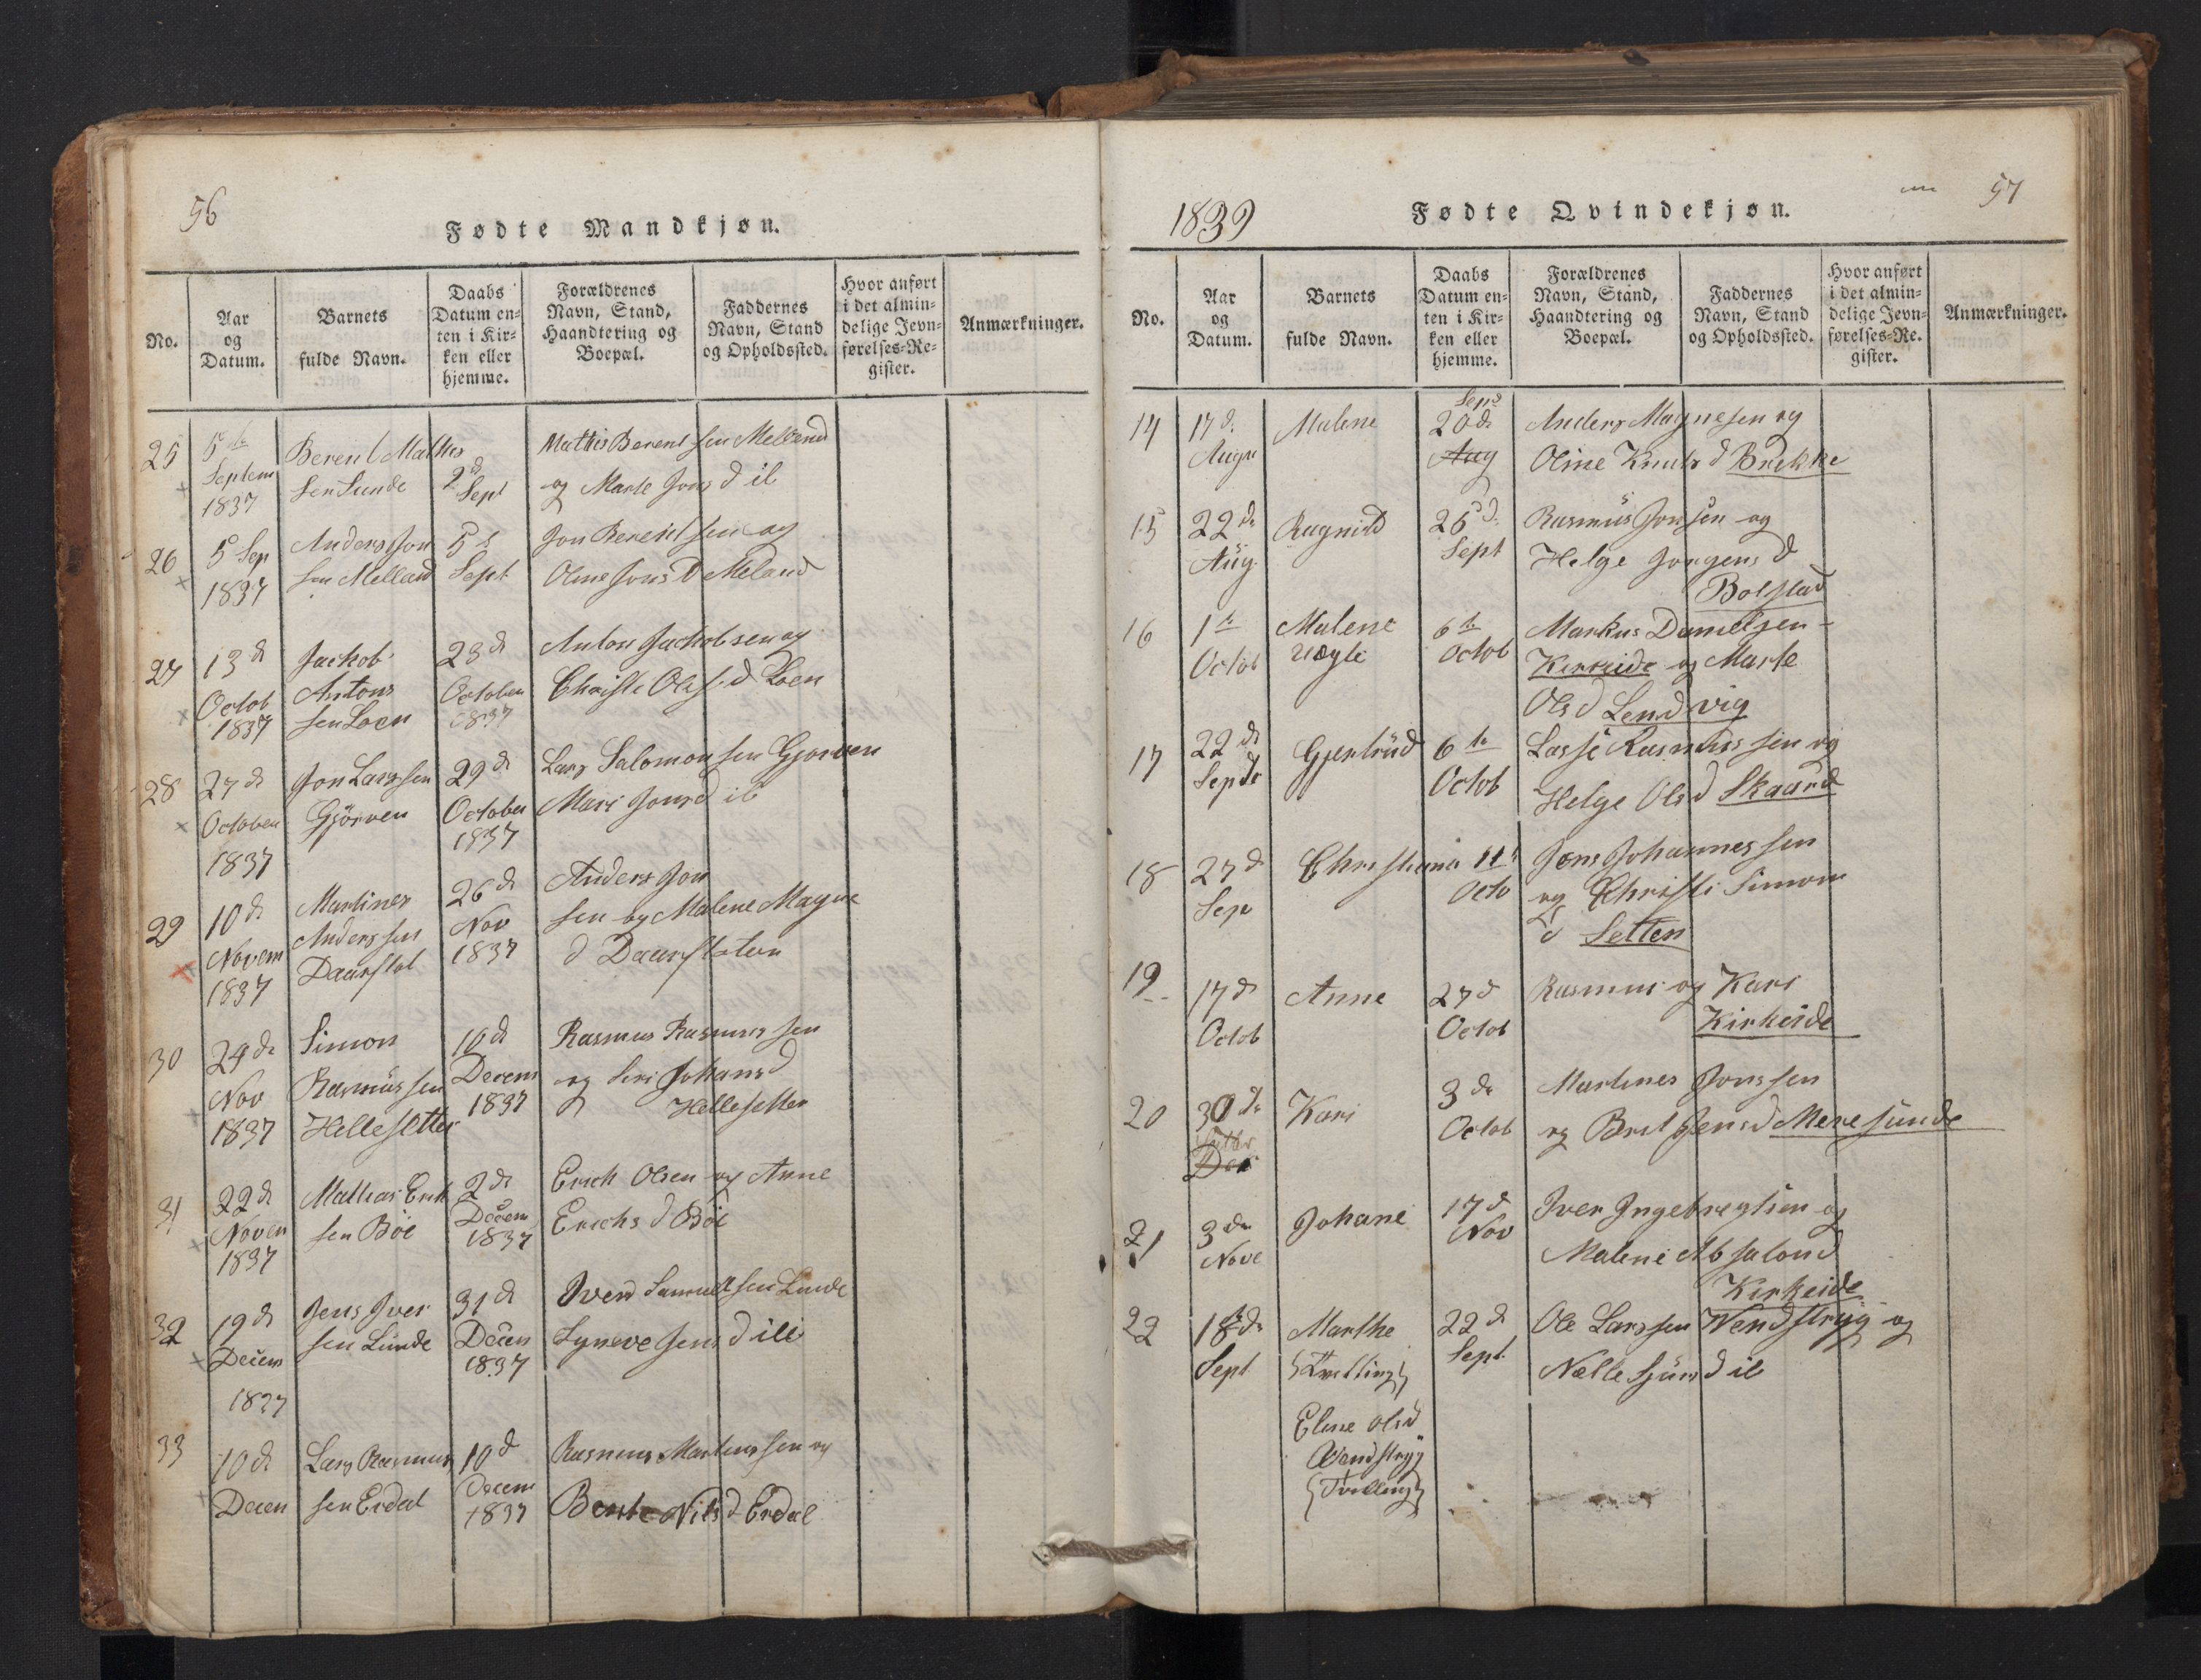 56
Fødte Mandkjøn.
No.
Aar
og
Datum.
Barnets
fulde Navn.
Daabs
Datum en-
ten i Kir-
ken eller
hjemme.
Forældrenes
Navn, Stand,
Haandtering og
Boepæl.
Faddernes
Navn, Stand
og Opholdssted.
Hvor anført
i det almin-
delige Jevn-
førelses-Re-
gister.
Anmærkninger.
25
5te
Septem
1837
Berent Mathis
sen Sunde
2d
Sept
Mathis Berent sen Melland
og Marte Jons d ib
26
5 Sep
1837
Anders Jon
sen Melland
5
Sept
Jon Berentsen og
Oline Jons d Meland
27
13 d
Octob
1837
Jackob
Antons
sen Loen
23 d
October
1837
Anton Jackobsen og
Christi Ols d Loen
28
27 d
October
1837
Jon Larssen
Gjörven
29 d
October
1837
Lars Salomonsen Gjorven
Mari Jonsd ib
29
10 d
Novem
1837
Martines
Anderssen
Daarstat
26 d
Nov
1837
Anders Jon
sen og Malene Magne
d Daarstaten
30
24 d
Nov
1837
Simon
Rasmüssen
Hellesetter
10 d
Decem
1837
Rasmus Rasmussen
og Siri Johans d
Hellesetter
31
22 d
Noven
1837
Mathias Erik
sen Böe
2 d
Decem
1837
Erich Olsen og Anne
Erichs d Böe
32
19 d
Decem
1837
Jens Iver
sen Lünde
31 d
Decen
1837
Iver Samuelsen Lunde
Syneve Jens d ib
33
10 d
Decen
Lars Rasmus
sen Erdal
10 d
Decem
1837
Rasmus Martinssen og
Bente Nils d Erdal
1839
Fødte Qvindekjøn.
57
No.
Aar
og
Datum.
Barnets
fulde Navn.
Daabs
Datum en-
ten i Kir-
ken eller
hjemme.
Forældrenes
Navn, Stand,
Haandtering og
Boepæl.
Faddernes
Navn, Stand
og Opholdssted.
Hvor anført
i det almin-
delige Jevn-
førelses-Re-
gister.
Anmærkninger.
14
17 d
Augu
Malene
Sept
20 d
Aug
Anders Magnesen og
Oline Knuts d Brekke
15
22 d
Aüg
Ragnild
25 d
Sept
Rasmüs Jonsen og
Helge Jorgens d
Bolstad
16
1te
Octob
Malene
6te
Octob
Markus Danielsen
Kirkeide og Marte
Ols d Lendvig
17
22 d
Septr
Gjertrüd
6te
Octob
Lasse Rasmussen og
Helge Ols d Skaard
18
27 d
Sep
Christiana
11
Octo
Jens Johannessen
og Christi Simon
d Setten
19
17 d
Octob
Anne
27 d
Octob
Rasmus og Kari
Kirkeide
20
30 d
Dec
Kari
3 d
Octob
Martines Jonssen
og Brit Jensd Meresunde
21
3 d
Nove
Johane
17 d
Nov
Iver Ingebregtsen og
Malene Absalond
Kirkeide
22
18 d
Sept
Marthe
Tvelling
22 d
Sept
Ole Larssen Wendstryg og
Nælle Sjurs d ib
Eline Olsd
Wendstryg
Tvilling